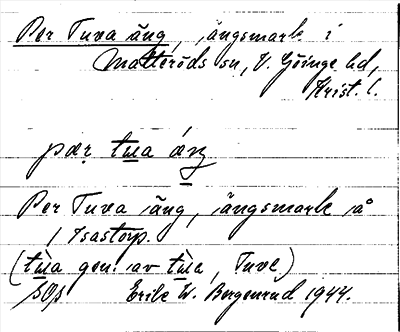 Per Tuva äng, ängsmark i
Matteröds sn, V. Göinge hd,
Krist. l.
pær tɯa áŋ
Per Tuva äng, ängsmark på
Isastorp.
(tɯa gen. av tɯa, Tuve)
Erik W. Bergenrud 1944.